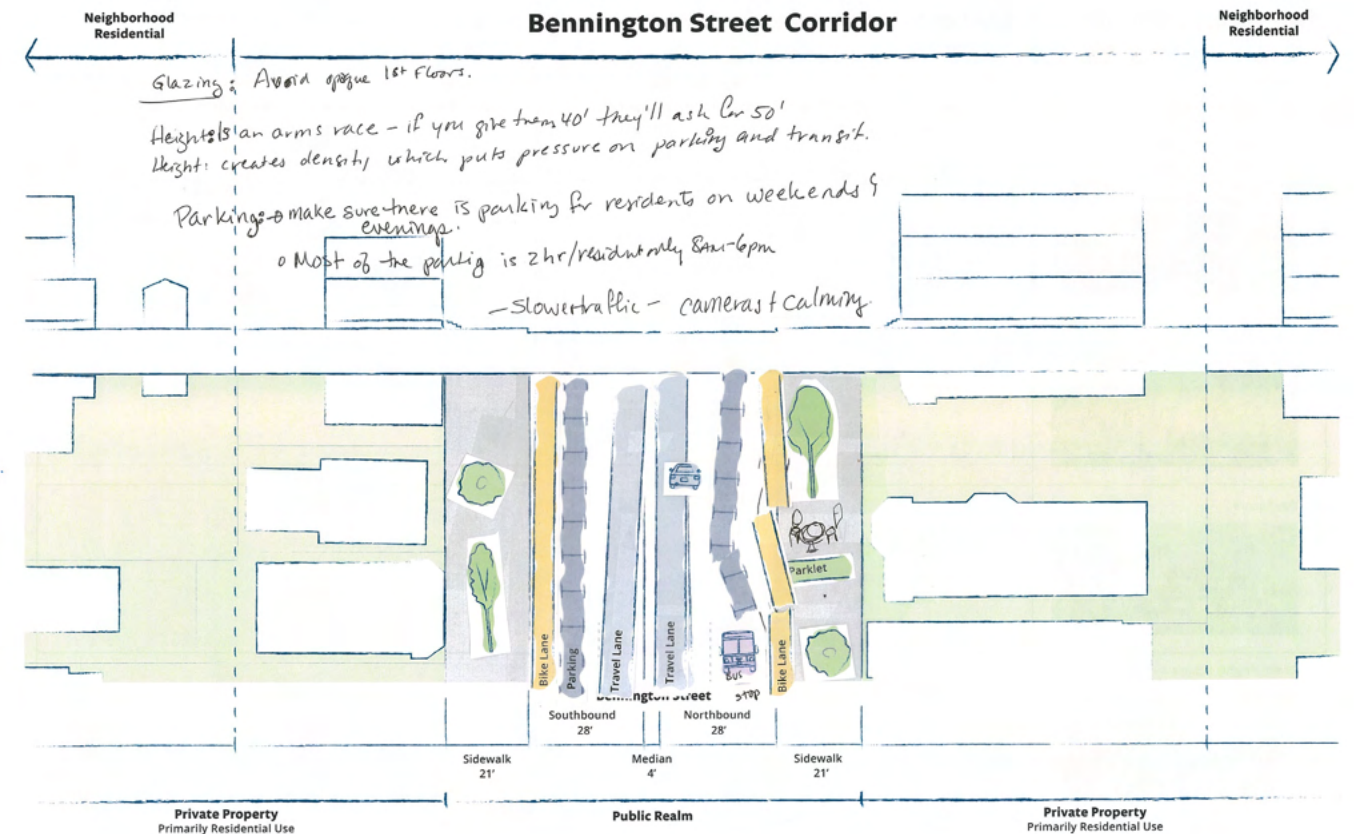 Neighborhood
Residential
Bennington Street Corridor
Neighborhood
Residential
Glazing: Avoid opaque 1st Floors.
Height: is an arms race - if you give them 40' they'll ask for 50'
Height: creates density which puts pressure on parking and transit.
Parking: make sure there is parking for residents on weekends &
evenings.
o Most of the parkig is 2hr/resident only 8AM-6pm
- Slower traffic - cameras + calming.
C
Parklet
C
Bike Lane
Parking
Travel Lane
Travel Lane
Bus
stop
Bike Lane
Bennington Street
Southbound
28'
Northbound
28'
Sidewalk
21'
Median
4'
Sidewalk
21'
Private Property
Primarily Residential Use
Public Realm
Private Property
Primarily Residential Use